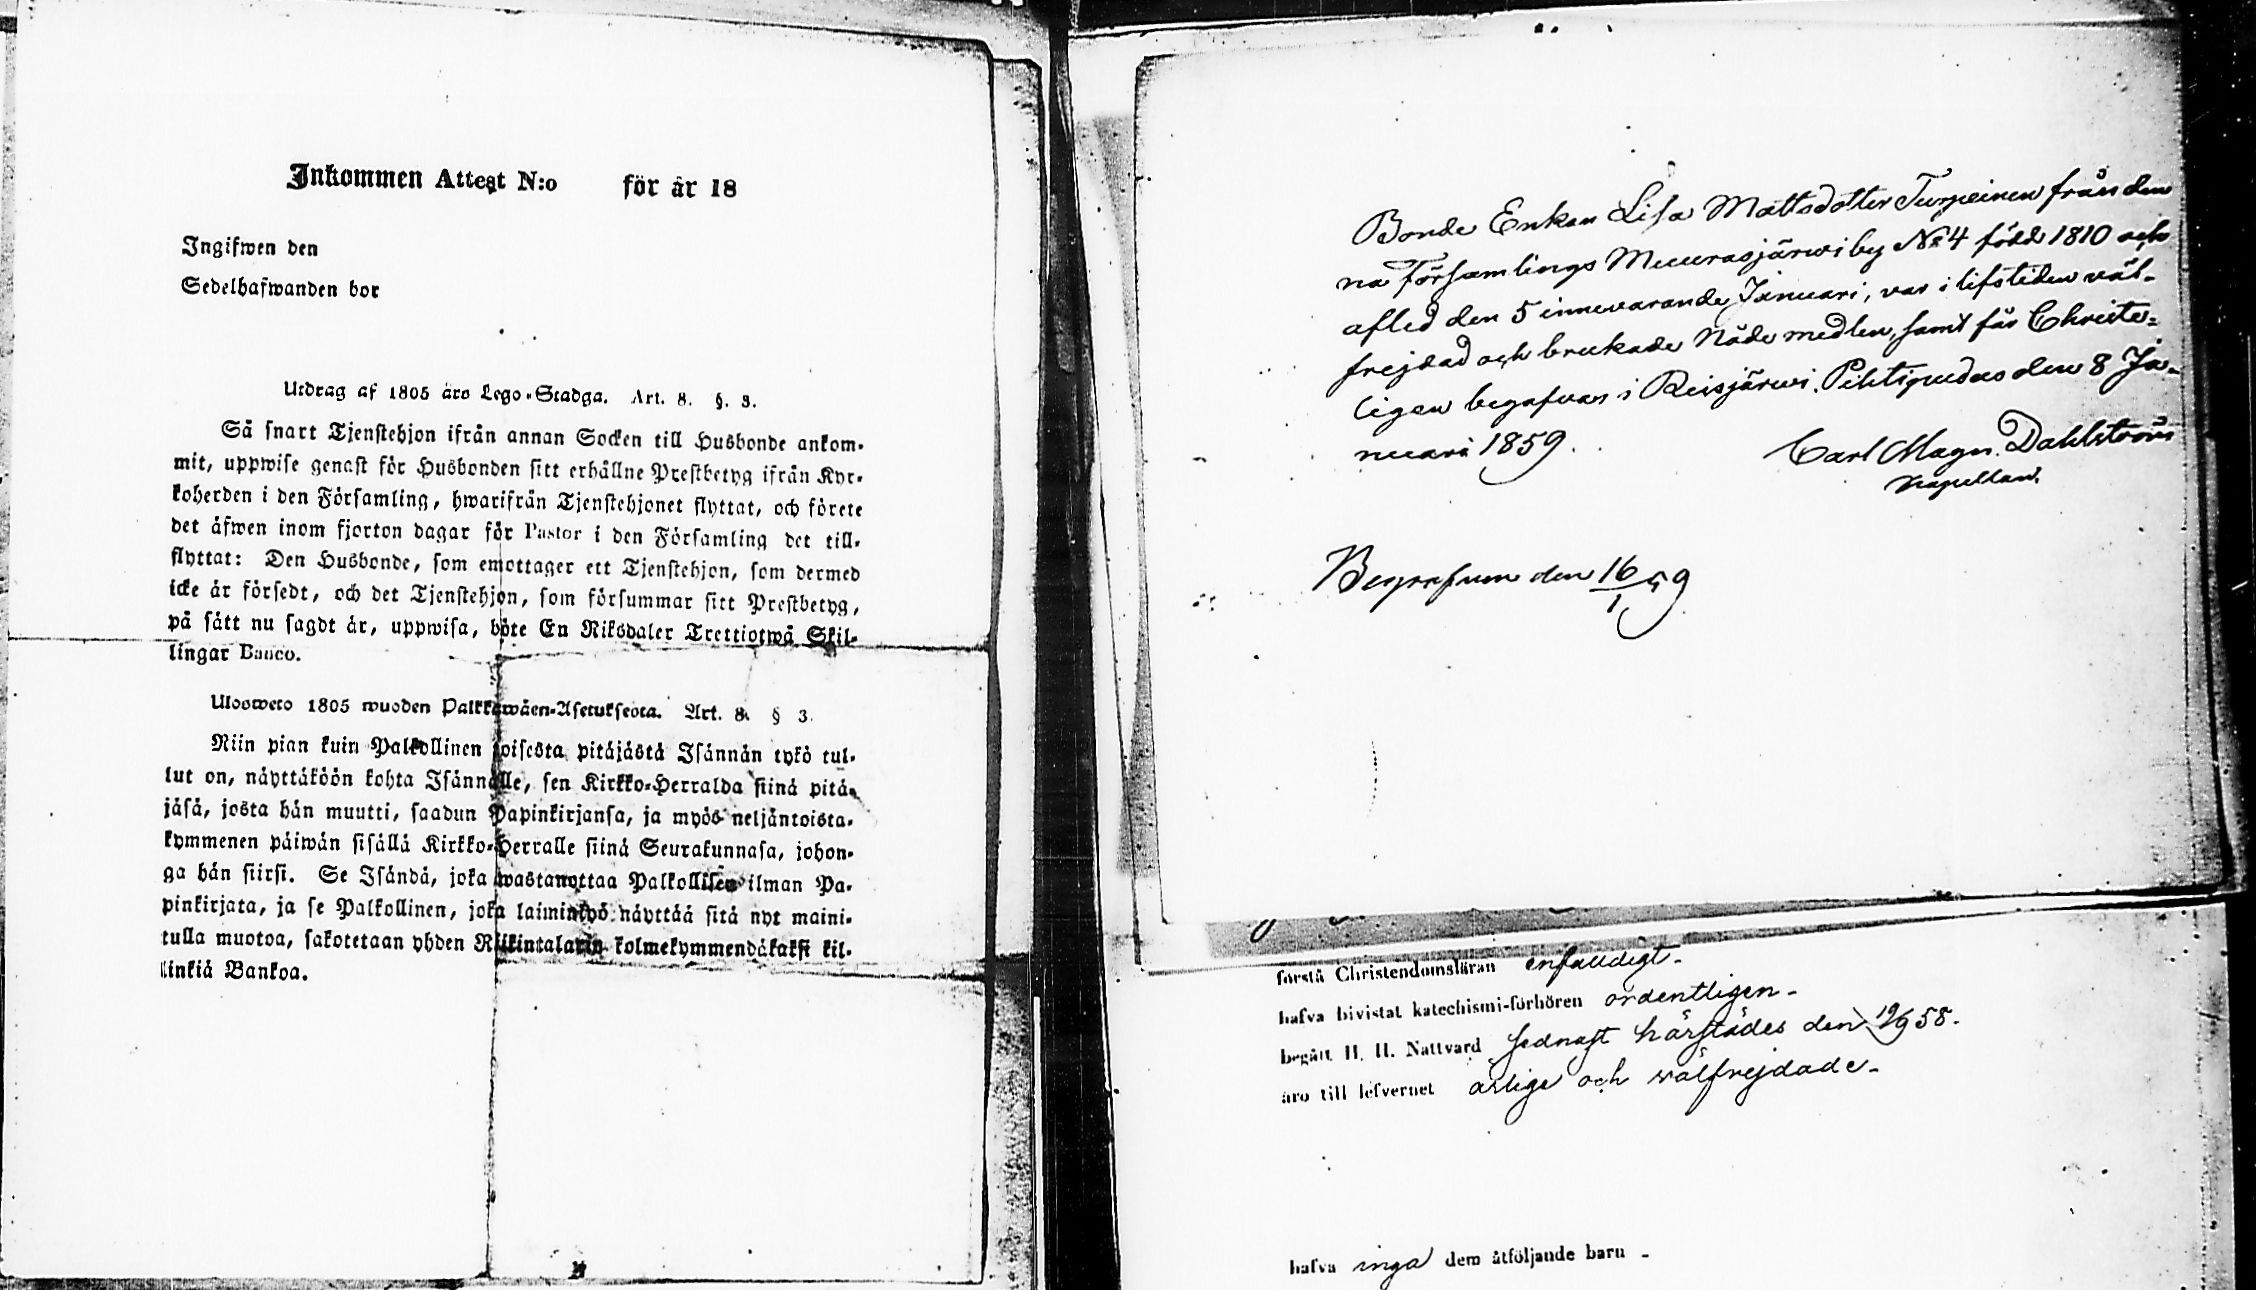 Inkommen Attest N:o för år 18
Ingifwen den
Sedelhafwanden bor
Utdrag af 1805 års Lego-Stadga. Art. 8. §. 3.
Så snart Tjenstehjon ifrån annan Socken till Husbonde ankom-
mit, uppwise genast för Husbonden sitt erhållne Prestbetyg ifrån Kyr-
koherden i den Församling, hwarifrån Tjenstehjonet flyttat, och förete
det äfwen inom fjorton dagar för Pastor i den Församling det till-
flyttat: Den Husbonde, som emottager ett Tjenstehjon, som dermed
icke är försedt, och det Tjenstehjon, som försummar sitt Prestbetyg,
på sätt nu sagdt är, uppwisa, böte En Riksdaler Trettiotwå Skil-
lingar Banco.
Ulosweto 1805 wuoden Palkkawäen-Asetuksesta. Art. 8. § 3.
Niin pian kuin Palkollinen toisesta pitäjästä Isännän tykö tul-
lut on, näyttäköön kohta Isännälle, sen Kirkko-Herralda siinä pitä-
jäsä, josta hän muutti, saadun Papinkirjansa, ja myös neljäntoista-
kymmenen päiwän sisällä Kirkko-Herralle siinä Seurakunnasa, johon-
ga hän siirsi. Se Isändä, joka wastanottaa Palkollisen ilman Pa-
pinkirjata, ja se Palkollinen, joka laiminlyö näyttää sitä nyt maini-
tulla muotoa, sakotetaan yhden Riikintalarin kolmekymmendäkaksi kil-
linkiä Bankoa.
Bonde Enkan Lisa Mattsdotter Turpeinen från den
na Församlings Muurasjärwi by No 4 född 1810 och
afled den 5 innevarande Januari, var i lifstiden väl-
frejdad och brukade Nåde medlen, samt får Christe-
ligen begrafvas i Reisjärwi. Pihtipudas den 8 Ja-
nuari 1859.
Carl Magn. Dahlström
Kapellan.
Begrafven den 16/1 59
förstå Christendomsläran enfaldigt.
hafva bivistat katechismi-förhören ordentligen -
begått H. H. Nattvard sednast härstädes den 19/9 58.
äro till lefvernet ärliga och välfrejdade -
hafva inga dem åtföljande barn -